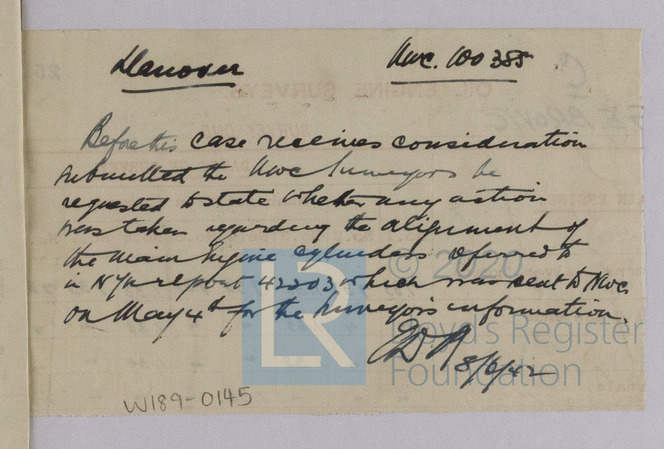 Llanover Nwc. 100385
Before this case receives consideration
submitted the Nwc Surveyors be
requested to state whether any action
was taken regarding the alignment of
the main engine cylinders referred to
in NYk report 42203, which was sent to Nwc.
on May 4th for the Surveyors information.
8/6/42
W189-0145
© 2020
LR
Lloyd's Register
Foundation
OIL ENGINE SURVEYS